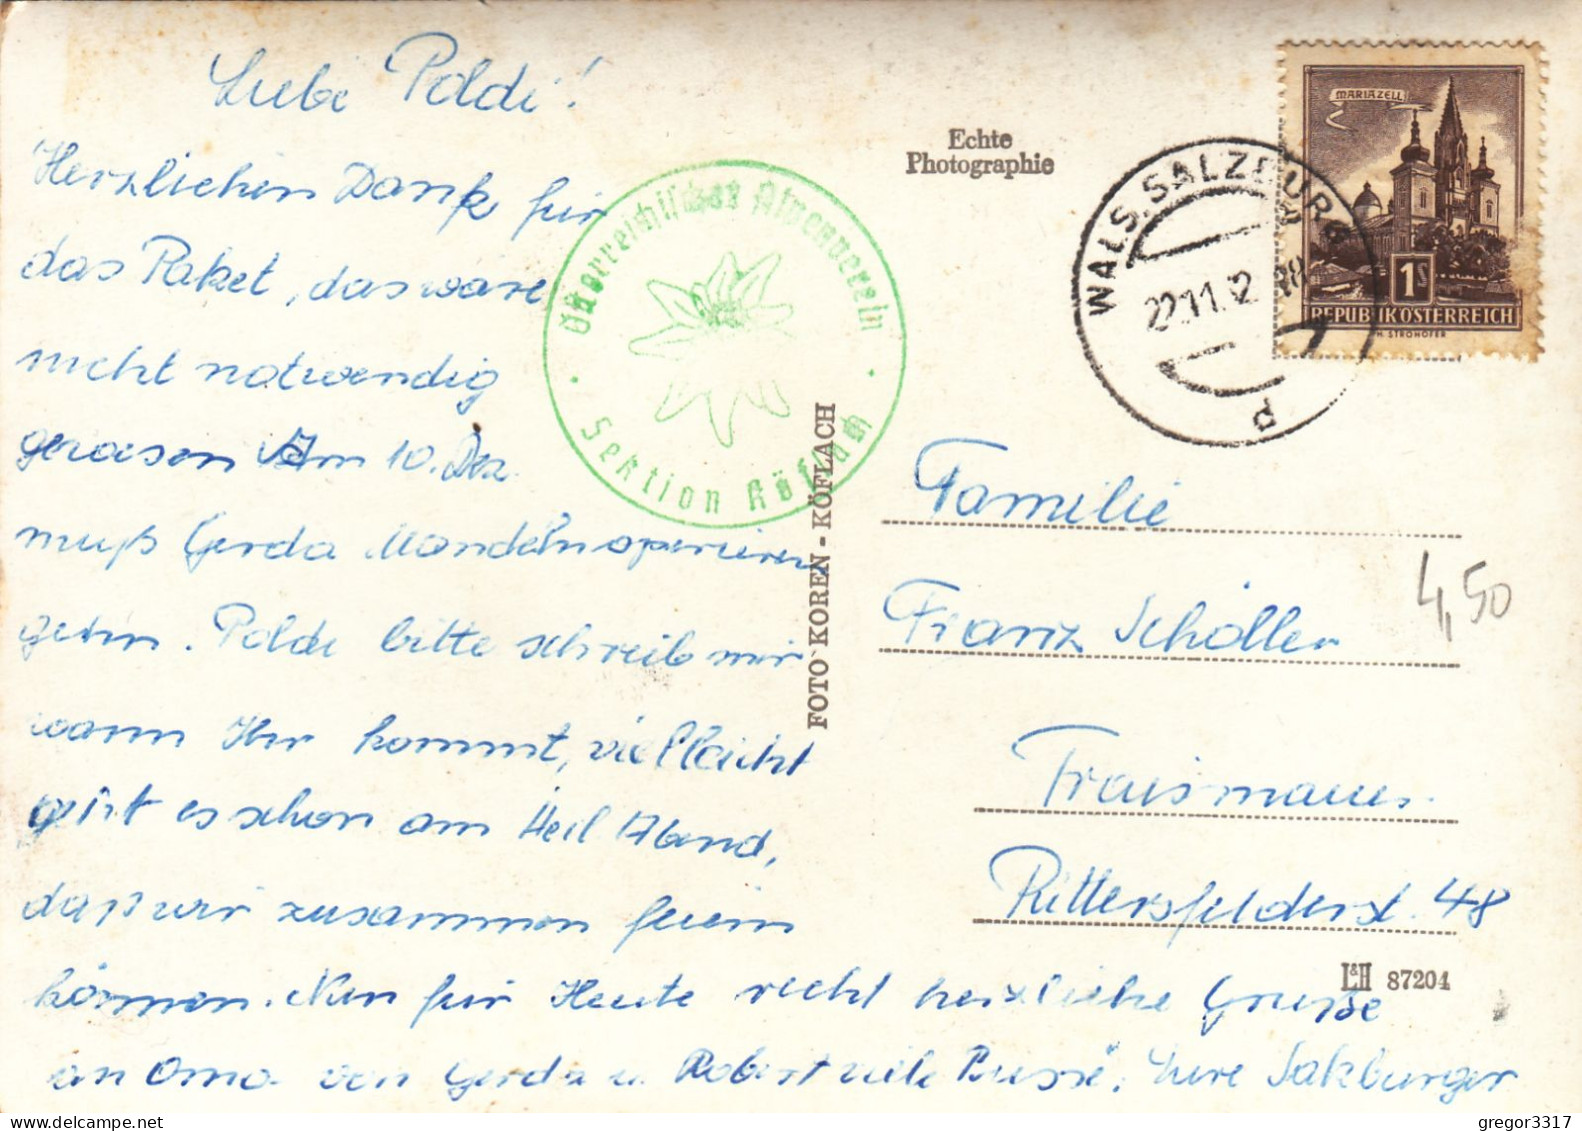 Liebe Poldi!
Herzlichen Dank für
das Paket, das wäre
nicht notwendig
gewesen. Am 10. Dez.
muß Gerda Mandelnoperieren
gehn. Poldi bitte schreib mir
wann Ihr kommt, vielleicht
geht es schon am Heil Abend,
daß wir zusammen feiern
können. Nun für Heute recht herzliche Grüße
an Oma von Gerda u. Robert viele Bussi, Eure Salzburger
Österreichischer Alpenverein
Sektion Köflach
FOTO KOREN - KÖFLACH
Echte
Photographie
WALS. SALZBURG
22.11.62
MARIAZELL
1S
REPUBLIK ÖSTERREICH
STROHOFER
Familie
Franz Schöller
4,50
Traismauer
Rittersfelderst. 48
L&H 87204
gregor3317